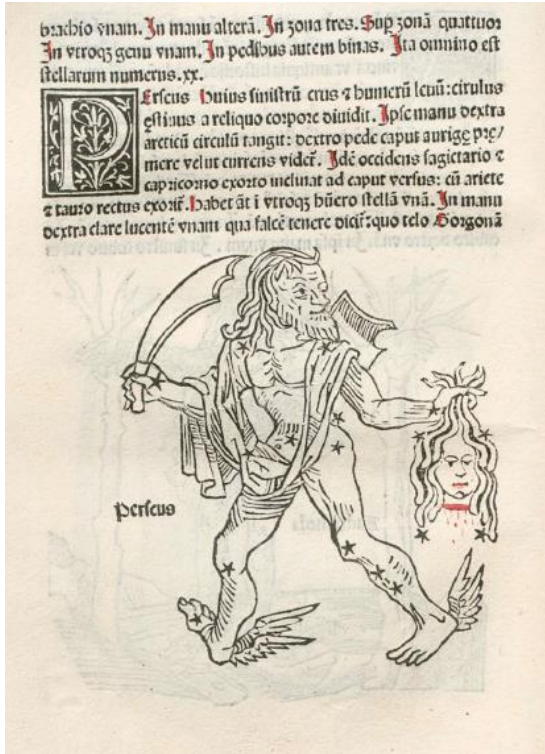 brachio vnam. In manu alterā. In zona tres. Sup zonā quattuor
In vtroqꝫ genu vnam. In pedibus autem binas. Ita omnino est
stellarum numerus.xx.
PErseus Huius sinistrū crus ⁊ humerū leuū: cirulus
ęstiuus a reliquo corpore diuidit. Ipse manu dextra
arcticū circulū tangit: dextro pede caput aurigę prę/
mere velut currens videt̄. Idē occidens sagictario ⁊
capricorno exorto inclinat ad caput versus: cū ariete
⁊ tauro rectus exorit̄. Habet āt i vtroqꝫ hūero stellā vnā. In manu
dextra clare lucentē vnam qua falcē tenere dicit̄: quo telo Gorgonā
Perseus